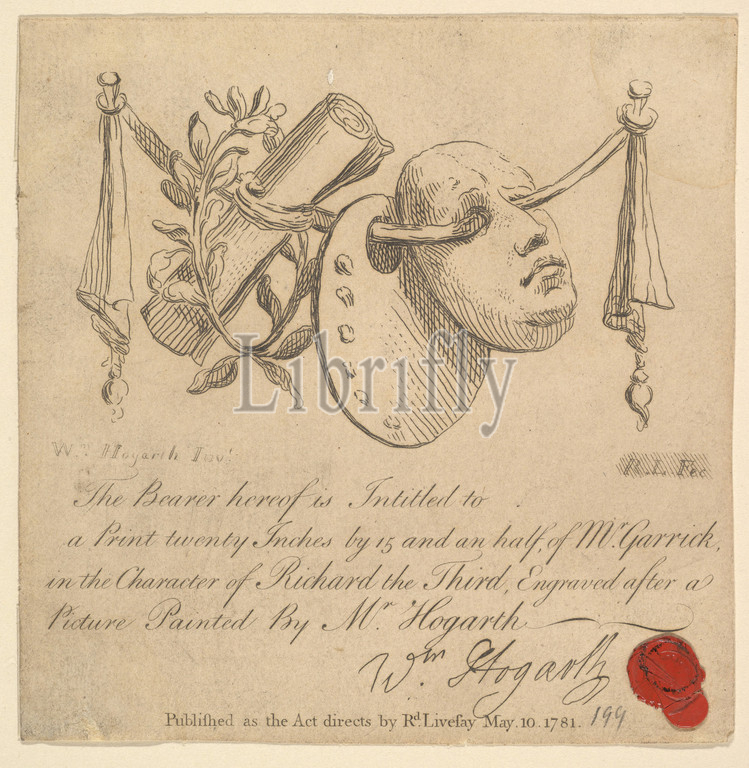 Librifly
Wm Hogarth Invt
R. L. Fec
The Bearer hereof is Intitled to
a Print twenty Inches by 15 and an half, of Mr Garrick,
in the Character of Richard the Third, Engraved after a
Picture Painted By Mr Hogarth
Wm Hogarth
Publiſhed as the Act directs by Rd Liveſay May. 10. 1781. 199